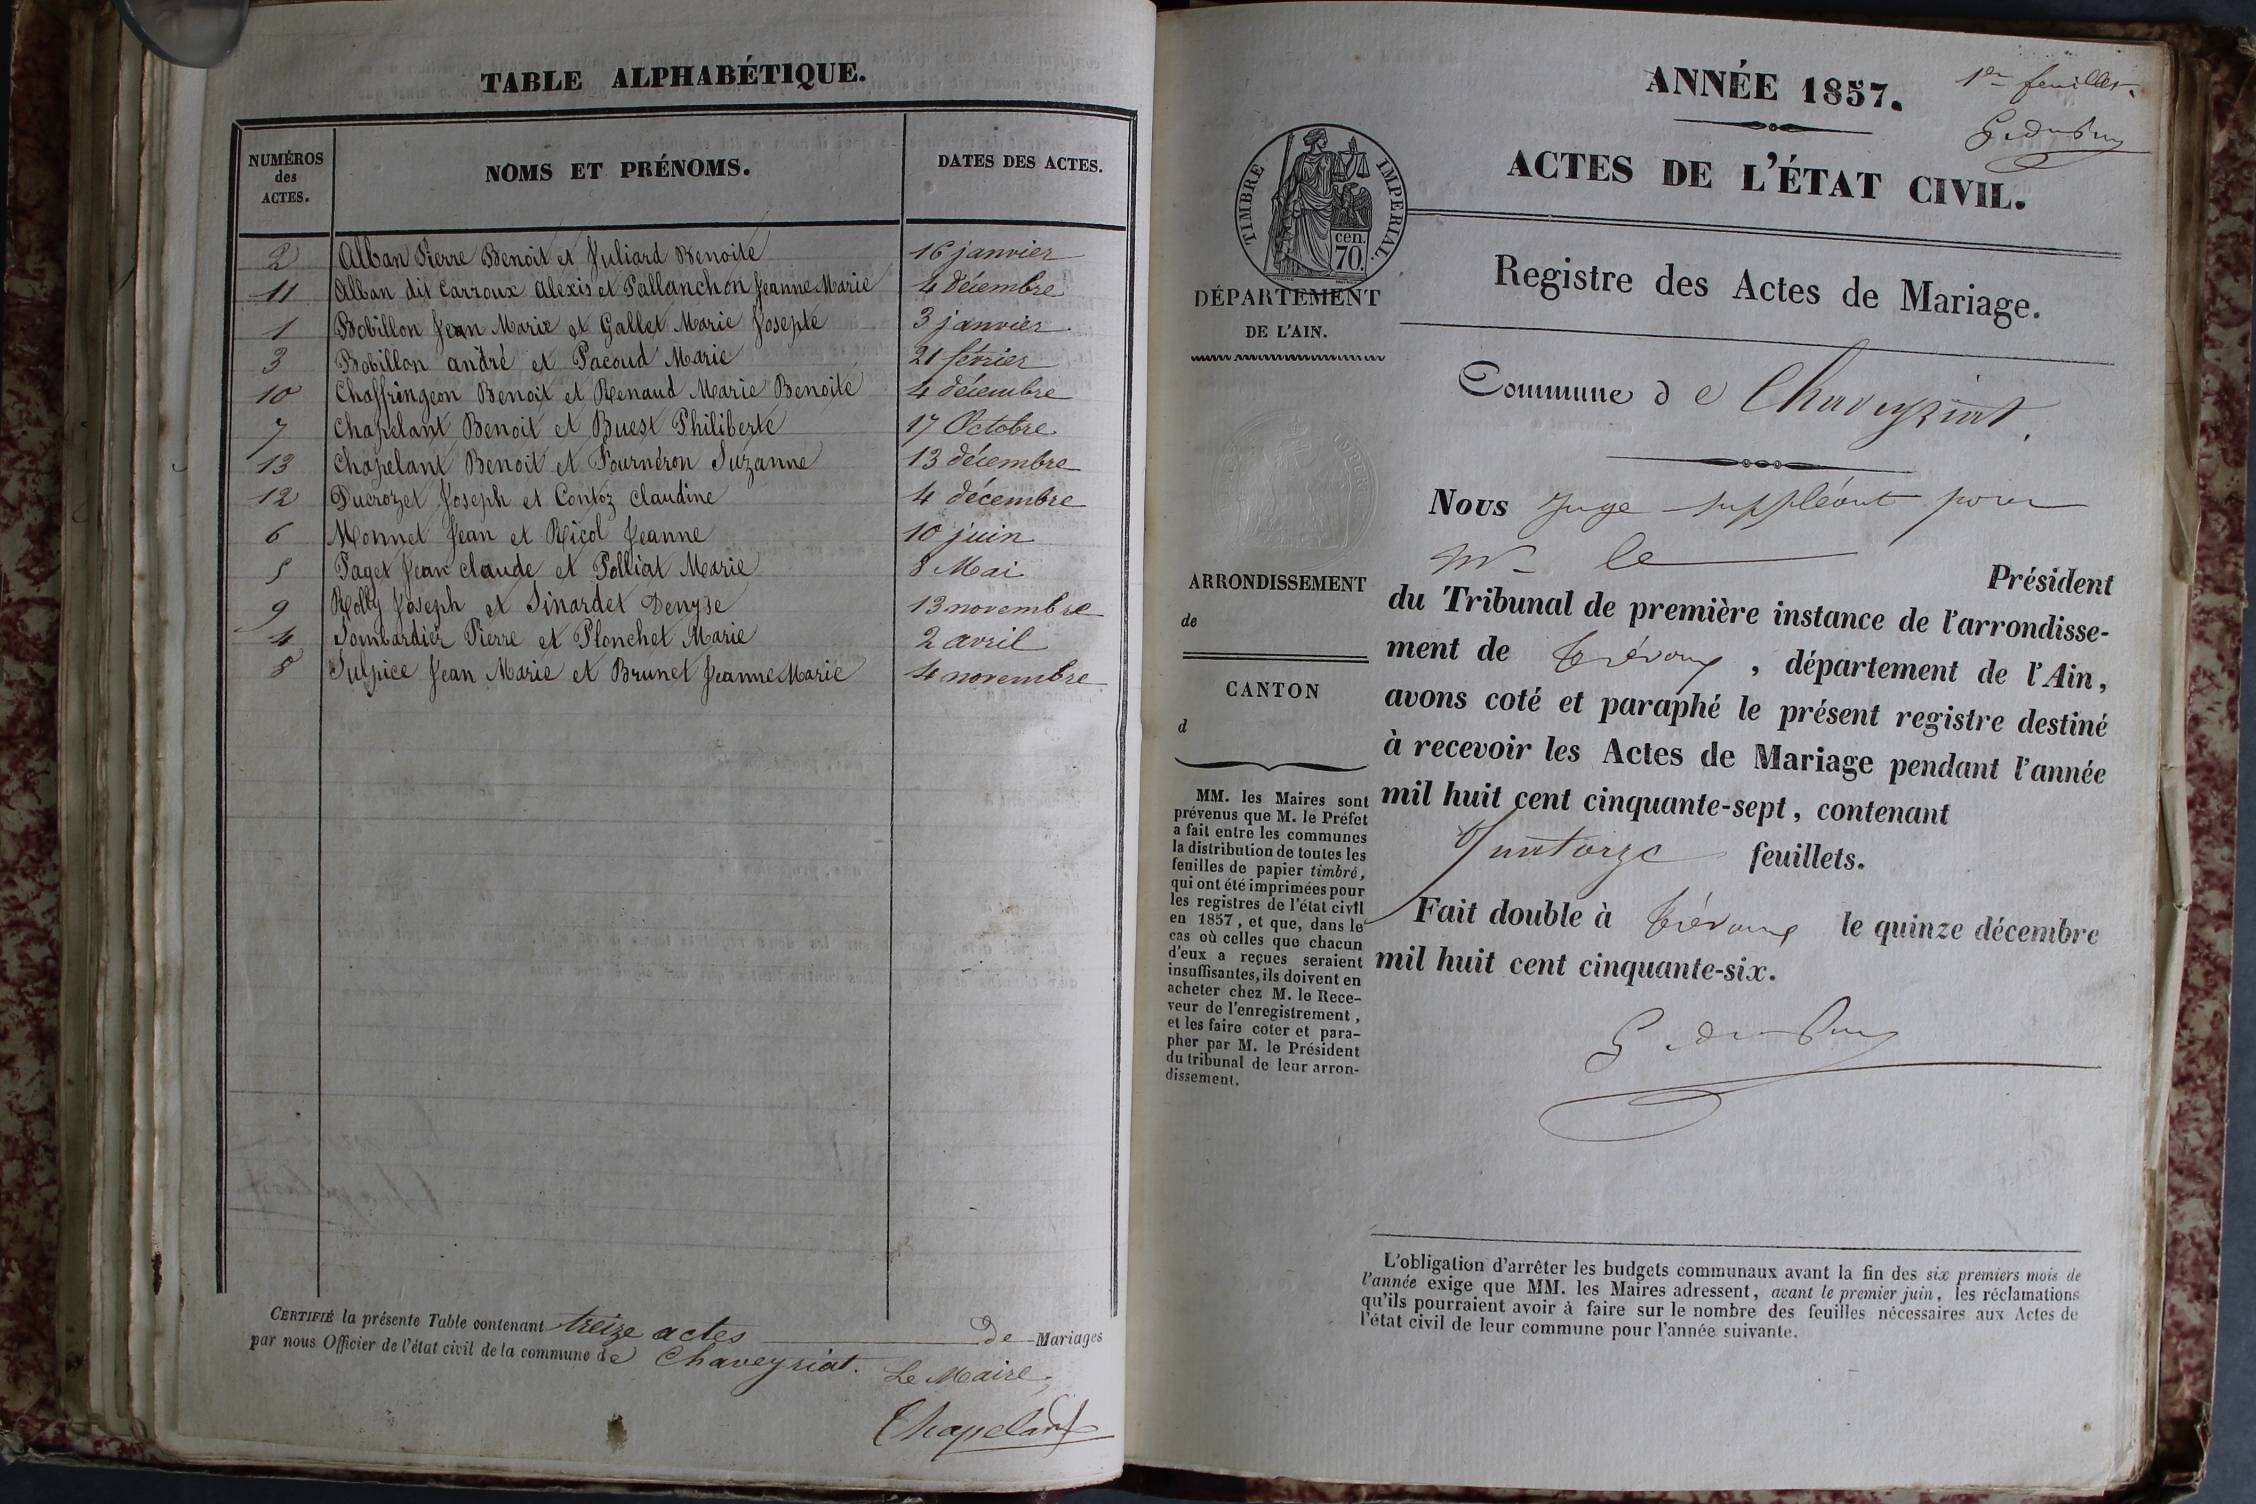 TABLE ALPHABÉTIQUE.
NUMÉROS
des
ACTES.
NOMS ET PRÉNOMS.
DATES DES ACTES.
2 Alban Pierre Benoit et Juliard Benoite 16 janvier
11 Alban dit Carroux Alexis et Pallanchon Jeanne Marie 4 décembre
1 Bobillon Jean Marie et Gallet Marie Josepte 3 janvier
3 Bobillon andré et Pacoud Marie 21 février
10 Chaffringeon Benoit et Renaud Marie Benoite 4 décembre
7 Chapelant Benoit et Buest Philiberte 17 Octobre
13 Chapelant Benoit et Fournéron Suzanne 13 décembre
12 Ducrozet Joseph et Contoz Claudine 4 décembre
6 Monnet Jean et Ricol Jeanne 10 juin
5 Paget Jean claude et Polliat Marie 8 Mai
9 Rolly Joseph et Sinardet Denyse 13 novembre
4 Sombardier Pierre et Plonchet Marie 2 avril
8 Sulpice Jean Marie et Brunet Jeanne Marie 4 novembre
CERTIFIÉ la présente Table contenant treize actes de Mariages
par nous Officier de l'état civil de la commune de Chaveyriat.
Le Maire,
Chapelant
1er feuillet.
ANNÉE 1857.
ACTES DE L'ÉTAT CIVIL.
TIMBRE IMPERIAL.
cen.
70.
DÉPARTEMENT
DE L'AIN.
Registre des Actes de Mariage.
Commune de Chaveyriat.
Nous Juge suppléant pour
Mr le Président
du Tribunal de première instance de l'arrondisse-
ment de Trévoux, département de l'Ain,
avons coté et paraphé le présent registre destiné
à recevoir les Actes de Mariage pendant l'année
mil huit cent cinquante-sept, contenant
quatorze feuillets.
Fait double à Trévoux le quinze décembre
mil huit cent cinquante-six.
ARRONDISSEMENT
de
CANTON
d
MM. les Maires sont
prévenus que M. le Préfet
a fait entre les communes
la distribution de toutes les
feuilles de papier timbré,
qui ont été imprimées pour
les registres de l'état civil
en 1857, et que, dans le
cas où celles que chacun
d'eux a reçues seraient
insuffisantes, ils doivent en
acheter chez M. le Rece-
veur de l'enregistrement,
et les faire coter et para-
pher par M. le Président
du tribunal de leur arron-
dissement.
L'obligation d'arrêter les budgets communaux avant la fin des six premiers mois de
l'année exige que MM. les Maires adressent, avant le premier juin, les réclamations
qu'ils pourraient avoir à faire sur le nombre des feuilles nécessaires aux Actes de
l'état civil de leur commune pour l'année suivante.